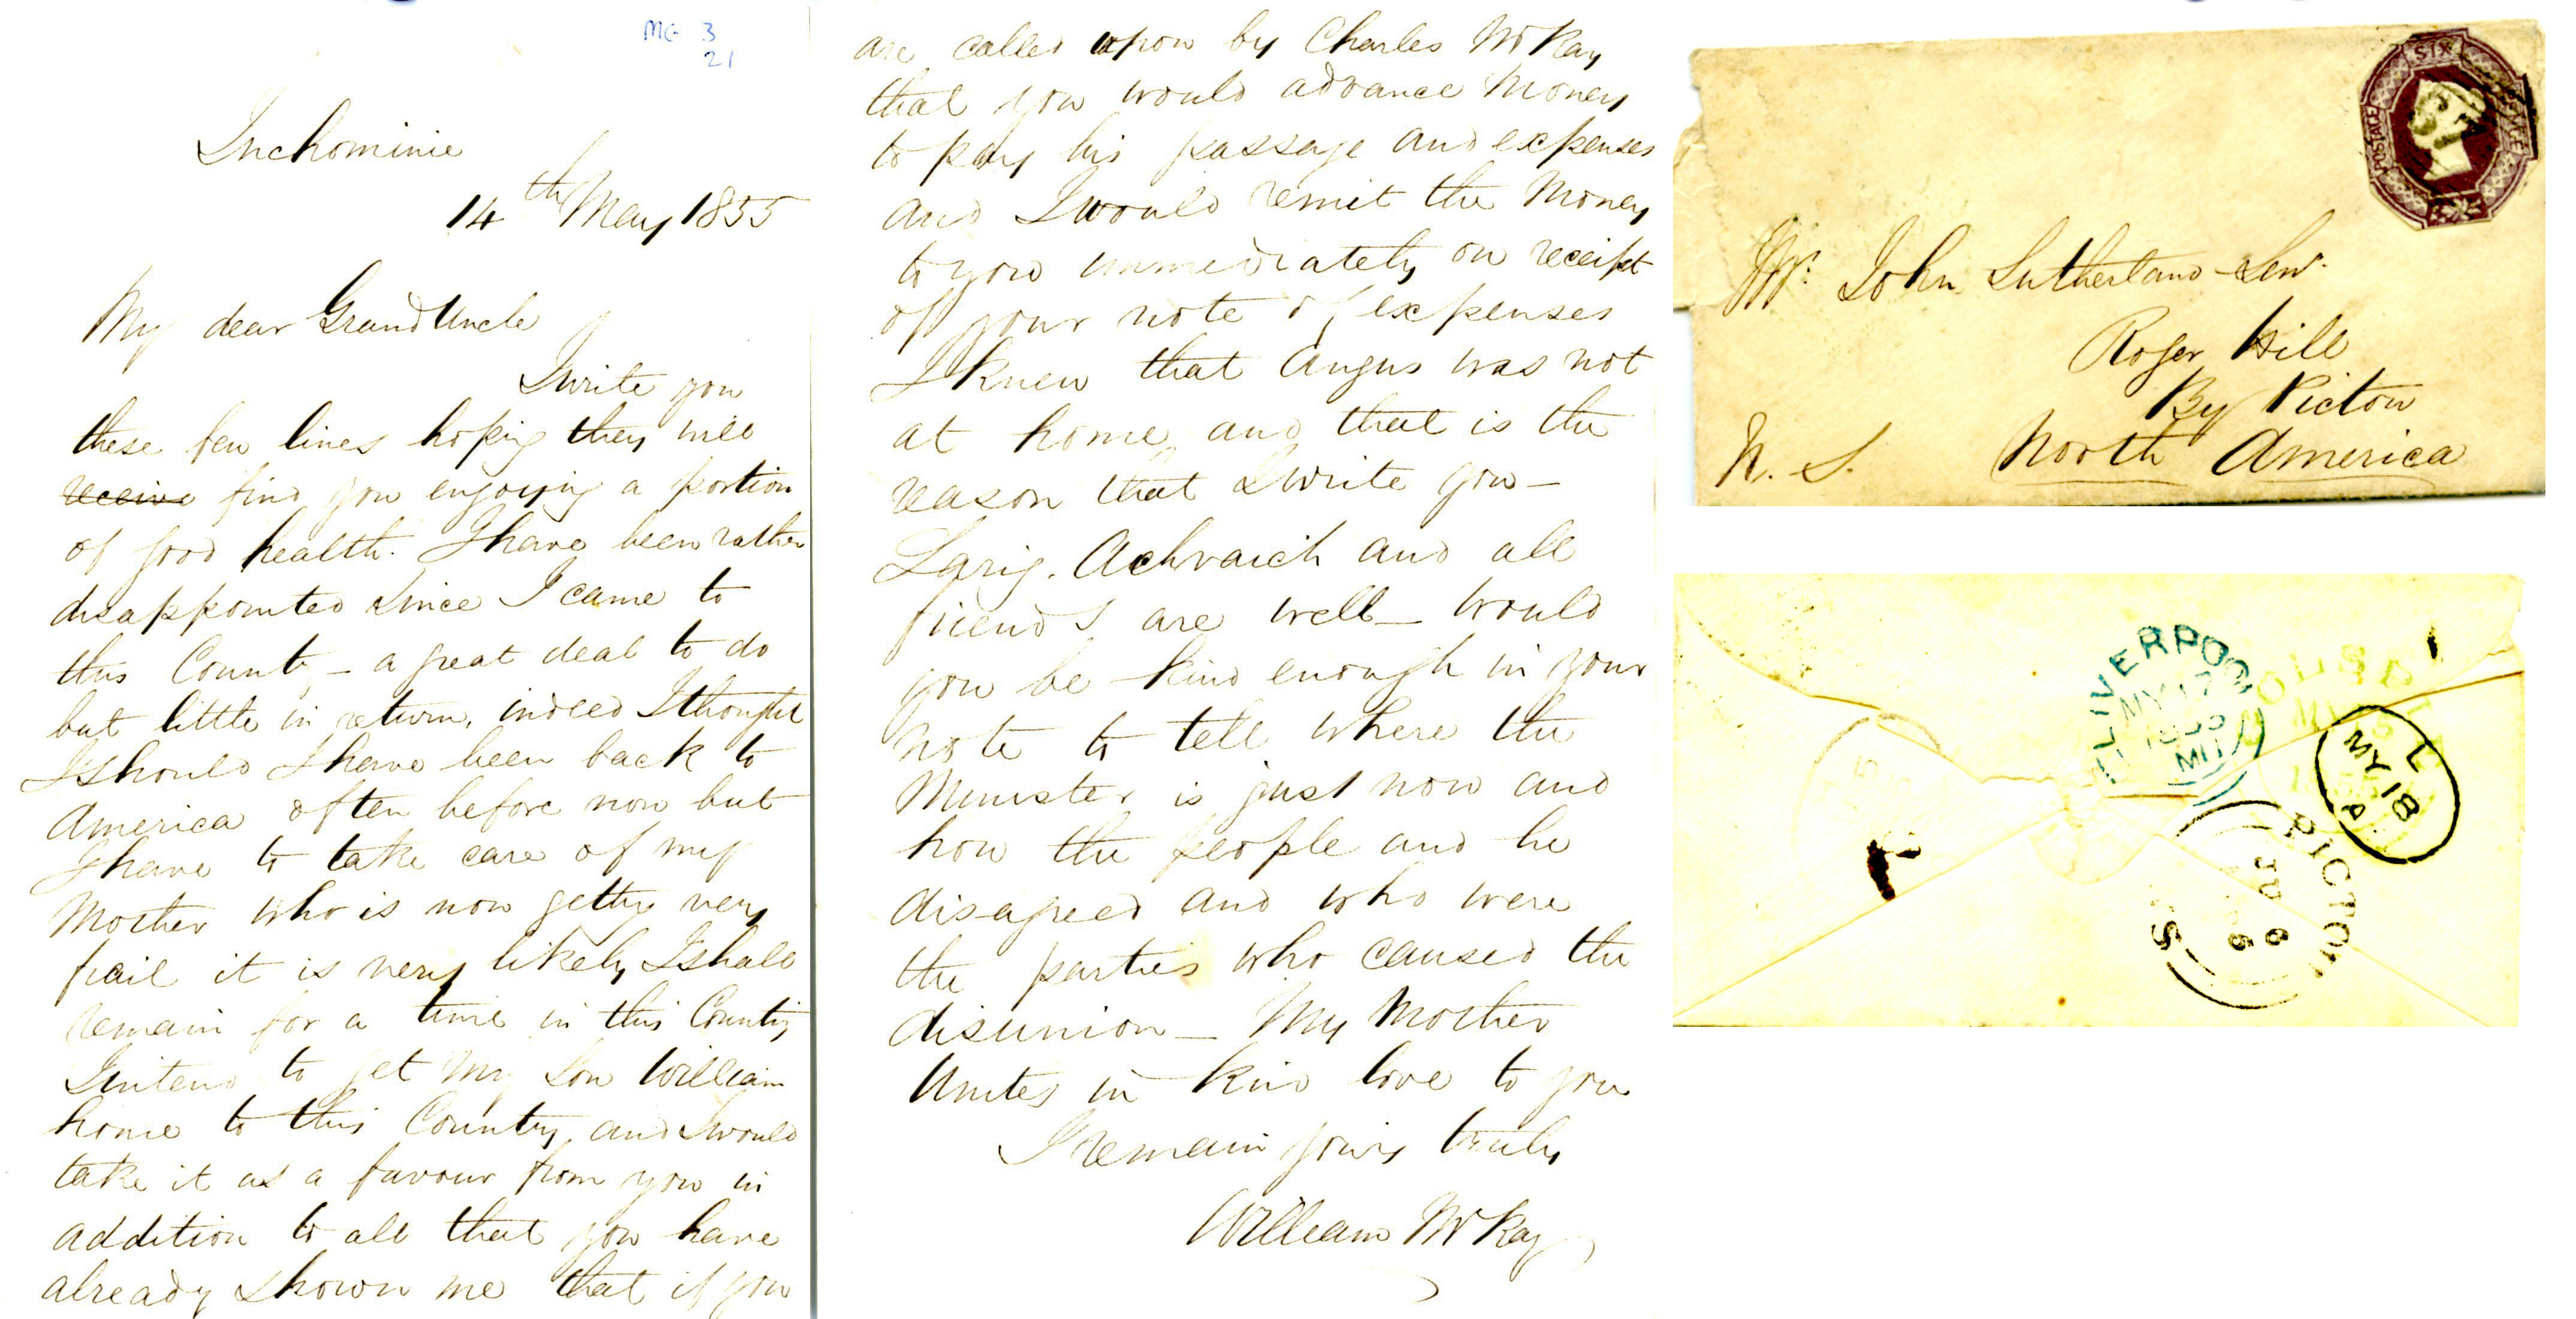 MG 3
21
Inchominie
14th May 1855
My dear Grand Uncle
I write you
these few lines hoping they will
receive find you enjoying a portion
of good health. I have been rather
disappointed since I came to
this County - a great deal to do
but little in return, indeed I thought
I should I have been back to
America often before now but
I have to take care of my
Mother who is now getting very
frail it is very likely I shall
remain for a time in this County
I intend to get my Son William
home to this Country, and I would
take it as a favour from you in
addition to all that you have
already shown me that if you
are called upon by Charles McKay
that you would advance Money
to pay his passage and expenses
and I would remit the Money
to you immediately on receipt
of your note of expenses
I knew that Angus was not
at home and that is the
reason that I write you -
Larig. Achvaich and all
friends are well - Would
you be kind enough in your
note to tell where the
Minister is just now and
how the people and he
disagreed and who were
the parties who caused the
disunion - My Mother
Unites in kind love to you
I remain yours truly
William McKay
SIX
POSTAGE
Mr. John Sutherland - Senr.
Roger Hill
By Pictou
N. S. North America
LIVERPOOL
MY 17
1855
L
MY 18
A
PICTOU
JU 6
N.S.